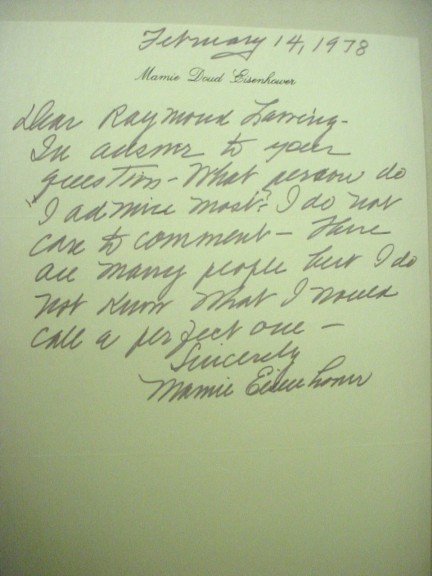 February 14, 1978
Mamie Doud Eisenhower
Dear Raymond
In answer to your
question - What person do
I admire most? I do not
care to comment - There
are many people but I do
not know what I would
call a perfect one -
Sincerely
Mamie Eisenhower